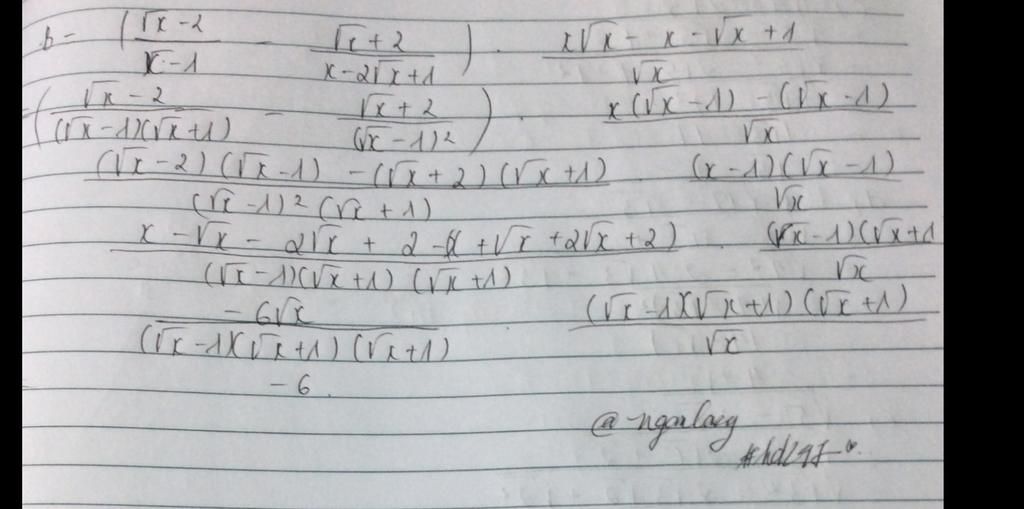 b = (√x - 2 / x - 1 - √x + 2 / x - 2√x + 1) . x√x - x - √x + 1 / √x
(√x - 2 / (√x - 1)(√x + 1) - √x + 2 / (√x - 1)²) . x(√x - 1) - (√x - 1) / √x
(√x - 2)(√x - 1) - (√x + 2)(√x + 1) / (√x - 1)²(√x + 1) . (x - 1)(√x - 1) / √x
x - √x - 2√x + 2 - (x + √x + 2√x + 2) / (√x - 1)(√x + 1)(√x + 1) . (√x - 1)(√x + 1 / √x
- 6√x / (√x - 1)(√x + 1)(√x + 1) . (√x - 1)(√x + 1)(√x + 1) / √x
- 6.